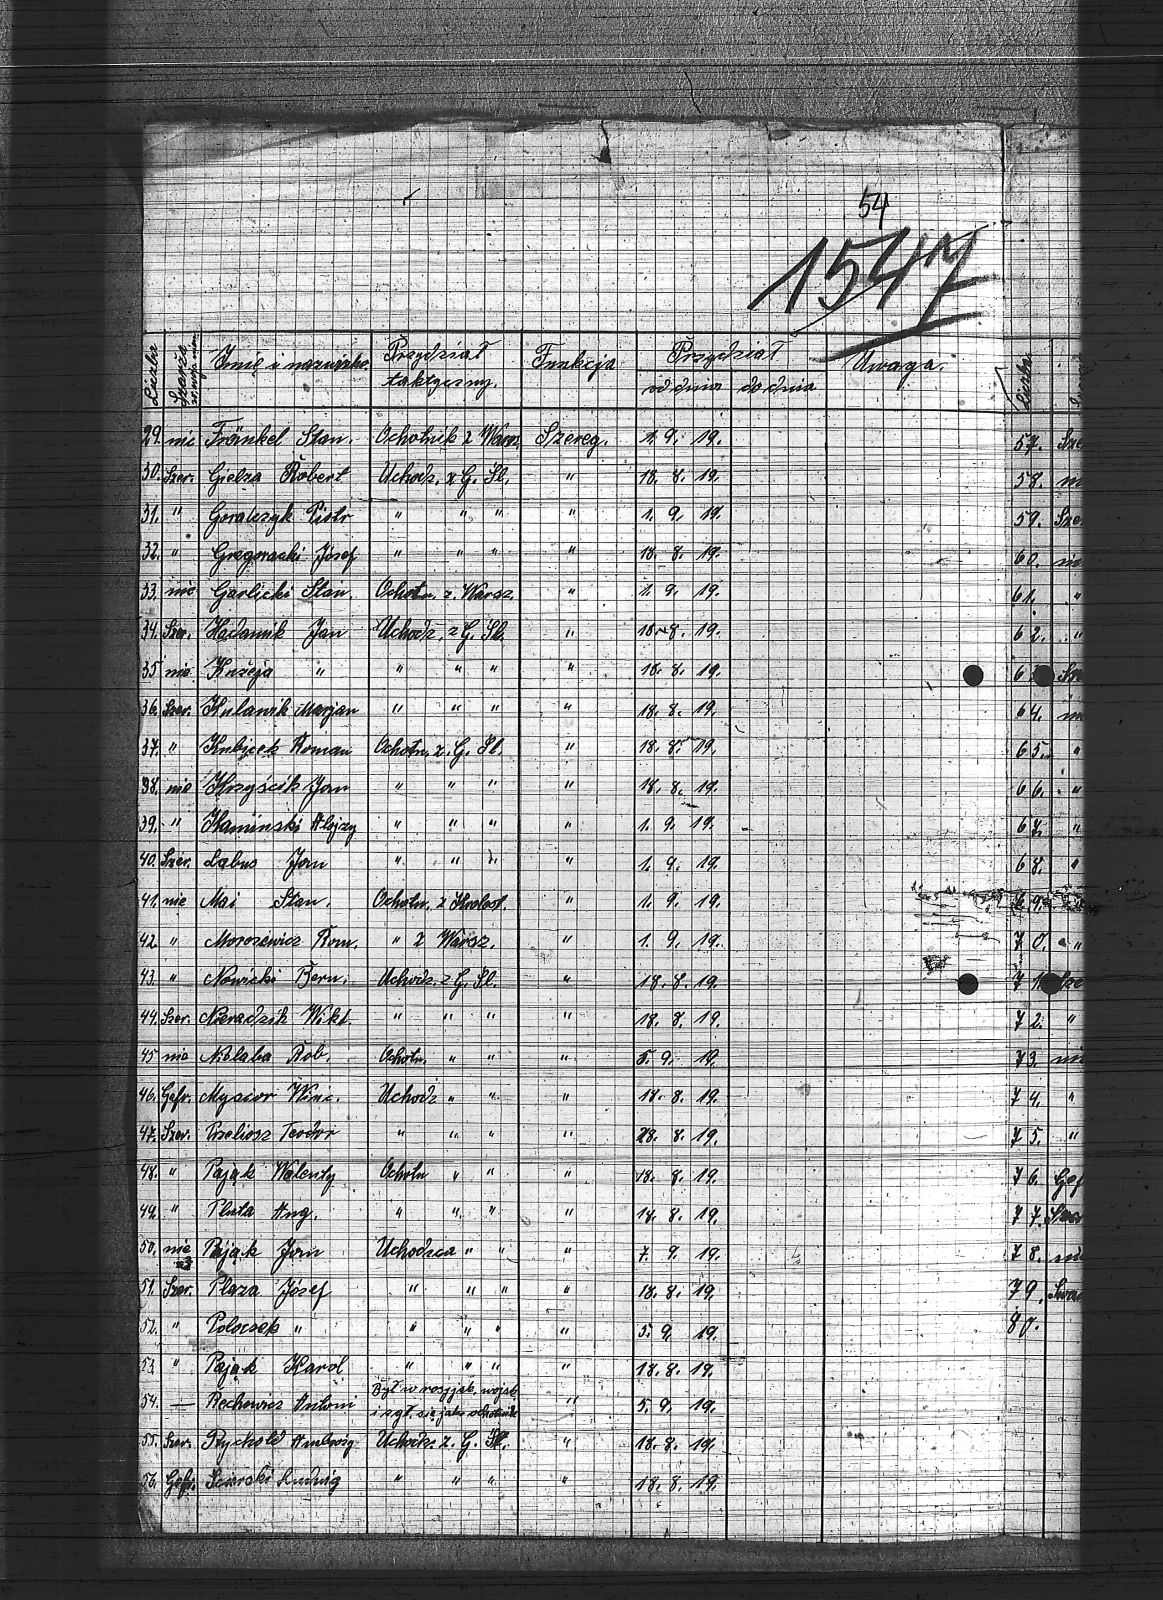 54
1547
Liczba Szarża Imię i nazwisko. Przydział taktyczny. Funkcja Przydział od dnia do dnia Uwaga. Liczba
29. nie Fränkel Stan. Ochotnik z Warsz. Szereg. 1. 9. 19. 57. Sze
30. Szer. Gielza Robert Uchodz. z G. Śl. " 18. 8. 19. 58. ni
31. " Goralczyk Piotr " " " " 1. 9. 19. 59. Sze
32. " Gregoracki Józef " " " " 18. 8. 19. 60. ni
33. nie Garlicki Stan. Ochotn. z Warsz. " 1. 9. 19. 61. "
34. Szer. Hadamik Jan Uchodz. z G. Śl. " 18. 8. 19. 62. "
35 nie Knzeja " " " " " 18. 8. 19. 6
36. Szer. Kulanik Marjan " " " " 18. 8. 19. 64. ni
37. " Kubicek Roman Ochotn. z. G. Śl. " 18. 8. 19. 65. "
38. nie Krzyścik Jan " " " " 18. 8. 19. 66. "
39. " Kamiński Alojzy " " " " 1. 9. 19. 67. "
40. Szer. Labus Jan " " " " 1. 9. 19. 68. "
41. nie Mai Stan. Ochotn. z " 1. 9. 19. 69.
42. " Morozewicz Rom. " z Warsz. " 1. 9. 19. 70. "
43. " Nowicki Bern. Uchodz. z G. Śl. " 18. 8. 19. 71. Sze
44. Szer. Nieradzik Wikt. " " " " 18. 8. 19. 72. "
45 nie Nislaba Rob. Ochotn. " " " 5. 9. 19. 73. nie
46. Gefr. Mysior Winc. Uchodz " " " 18. 8. 19. 74. "
47. Szer. Pzeliosz Teodor " " " " 28. 8. 19. 75. "
48. " Pająk Walenty Ochotn " " " 18. 8. 19. 76. Gef
49. " Pluta Aug. " " " " 18. 8. 19. 77. Szer
50. nie Pająk Jan Uchodzca " " " 7. 9. 19. 78. ni
51. Szer. Plaza Józef " " " " 18. 8. 19. 79.
52. " Poloczek " " " " " 5. 9. 19. 80.
53. " Pająk Karol " " " " 18. 8. 19.
54. — Rechowicz Antoni Był w rosyjsk. wojsk. i zgł. się jako ochotnik " 5. 9. 19.
55. Szer. Rychold Ambroży Uchodz. z. G. Śl. " 18. 8. 19.
56. Gefr. Ludwig " " " " 18. 8. 19.